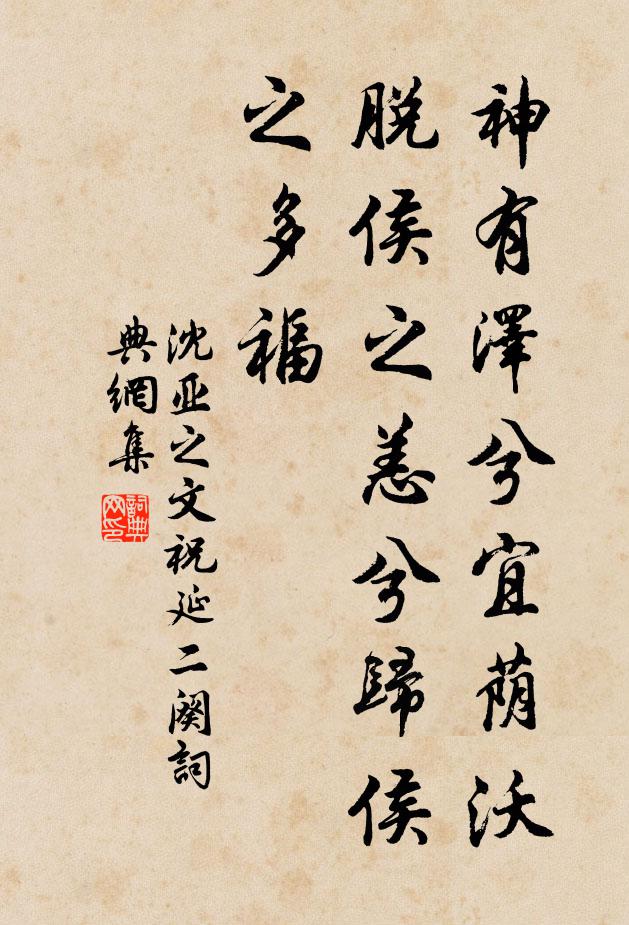 神有澤兮宜荫沃
脱侯之恙兮歸侯
之多福
沈亚之文祝延二阕詞
典網集
詞典
网印